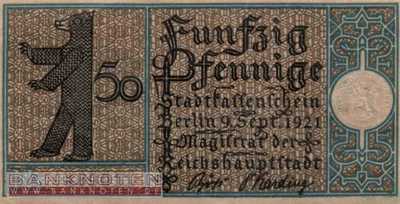 50
Funfzig
Pfennige
Stadtkassenschein
Berlin 9. Sept. 1921
Magistrat der
Reichshauptstadt
BANKNOTEN
WWW.BANKNOTEN.DE